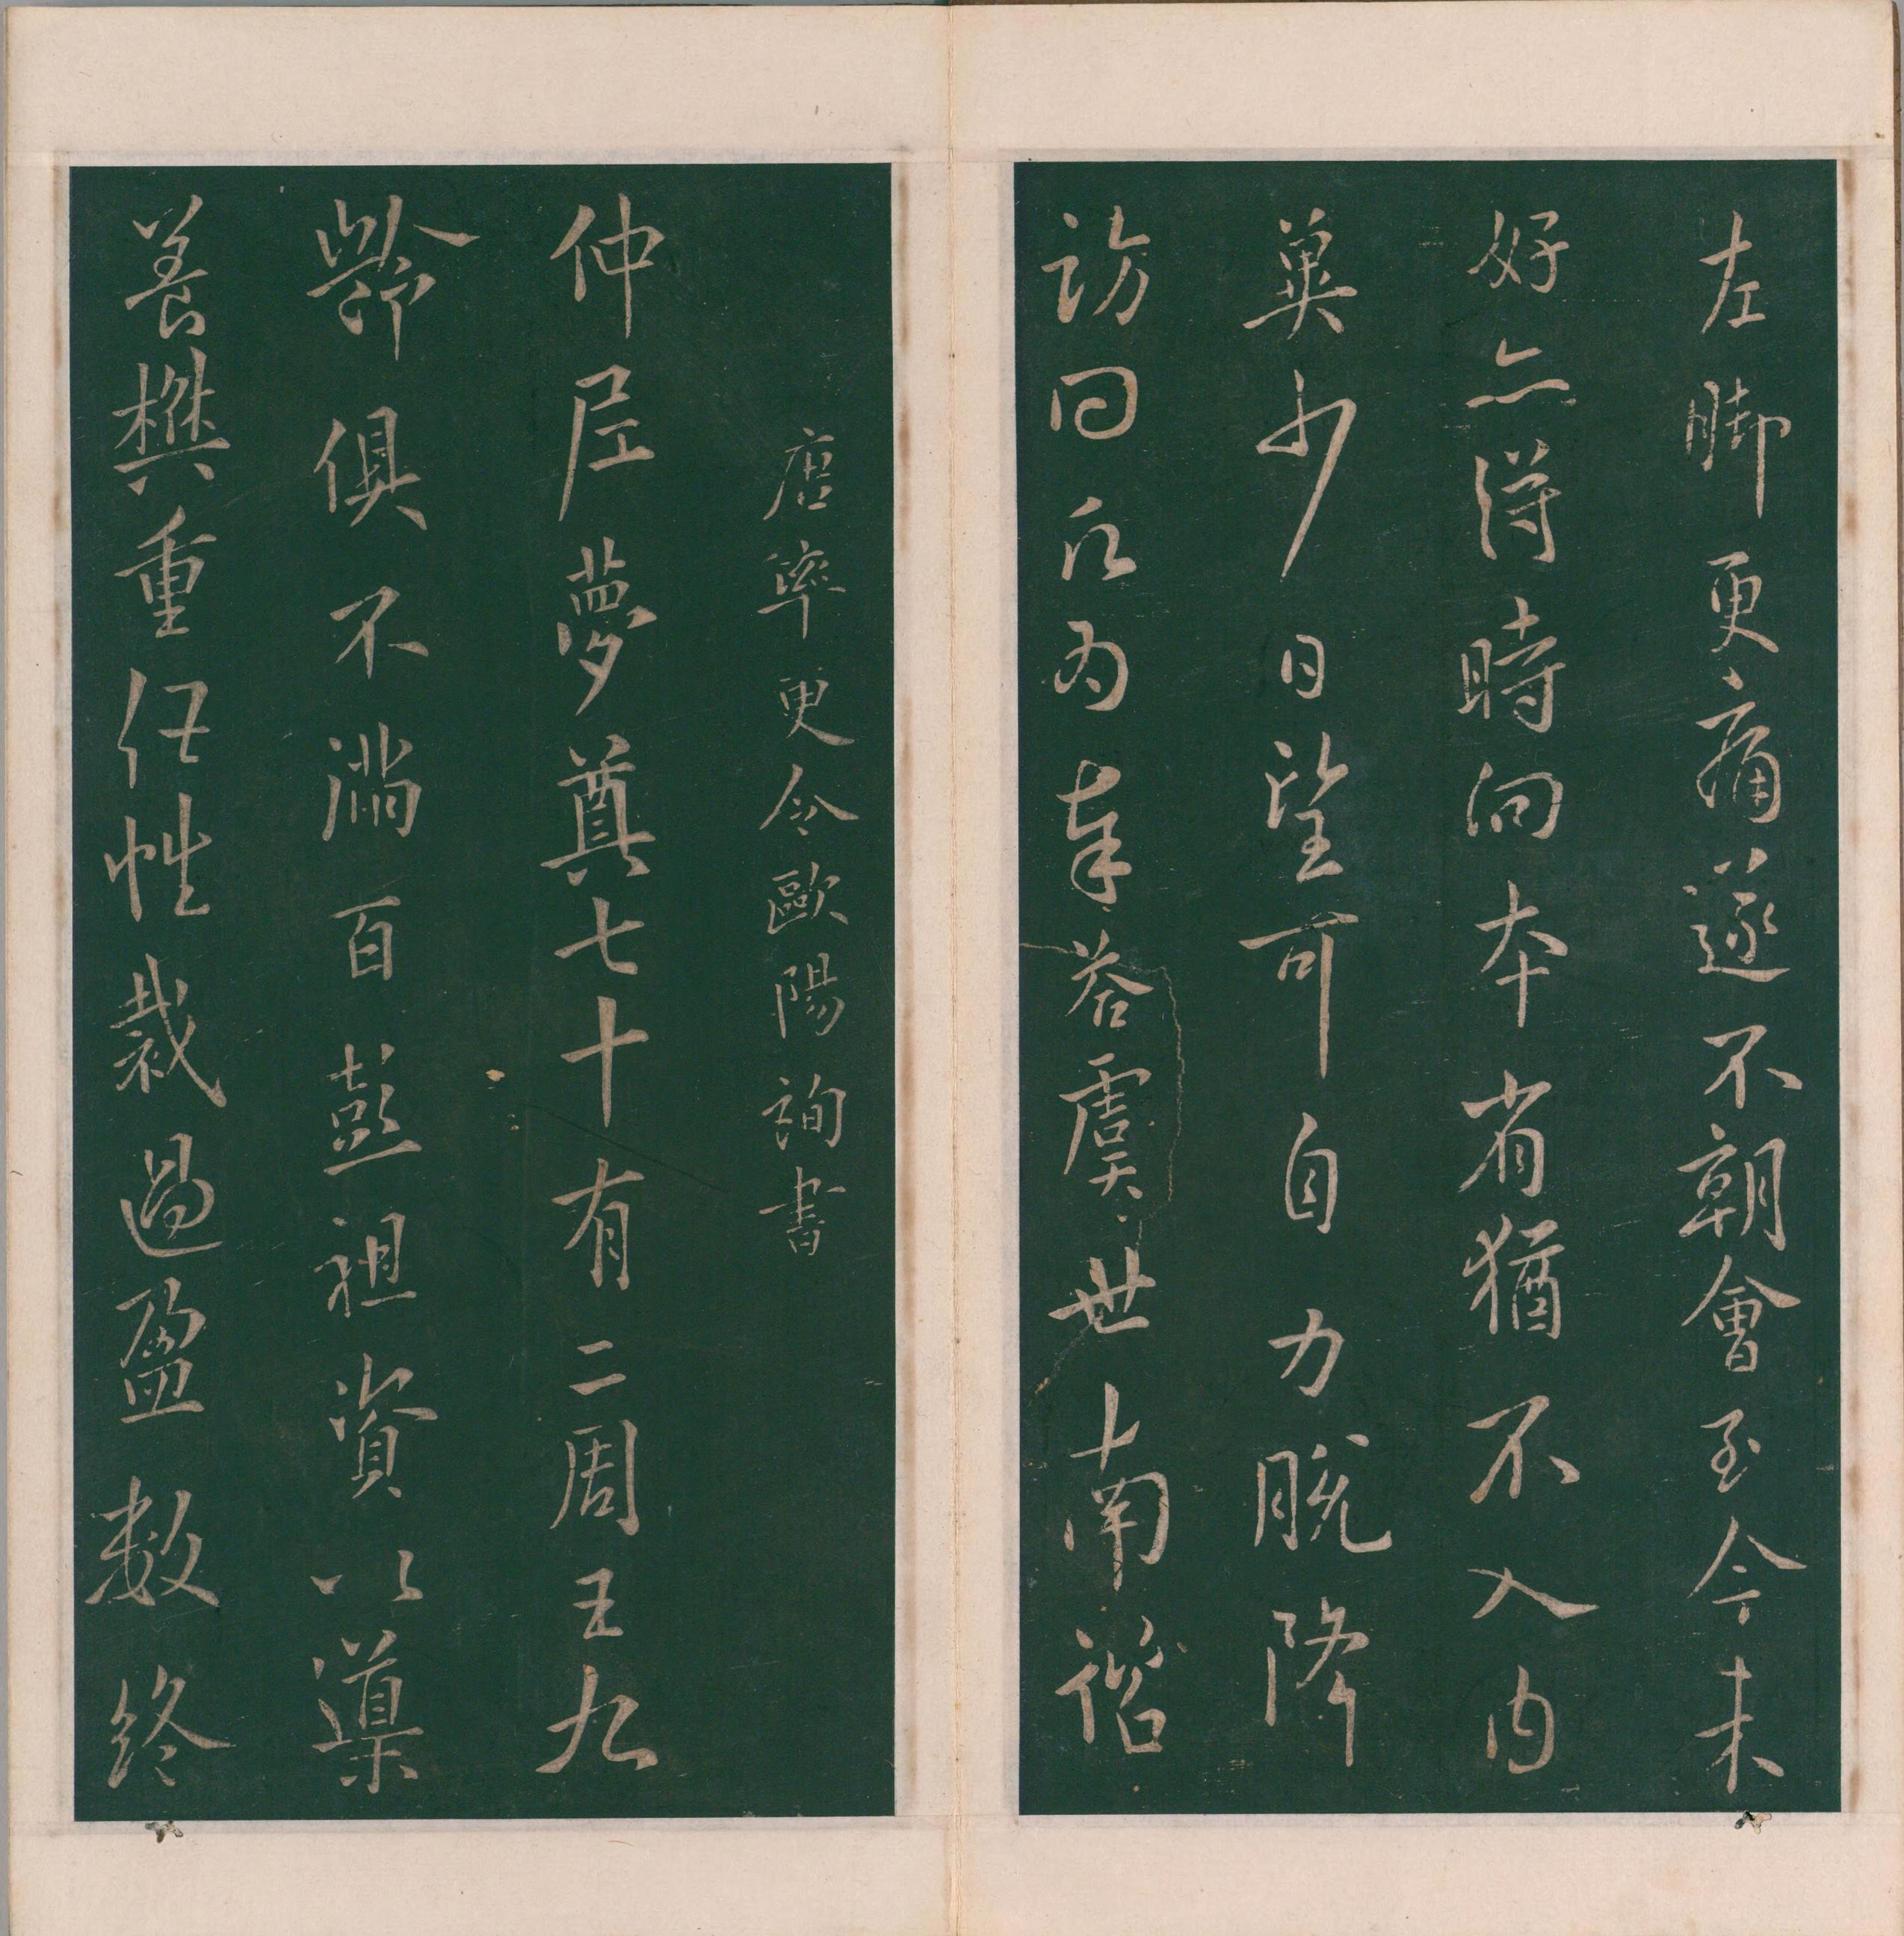 左脚更痛遂不朝會至今未
好亦得時向本省猶不入內
冀少日望可自力脫降
訪問氏為奉荅虞世南諮
唐率更令歐陽詢書
仲尼夢奠七十有二周王九
齡俱不滿百彭祖資以導
養樊重任性裁過盈數終